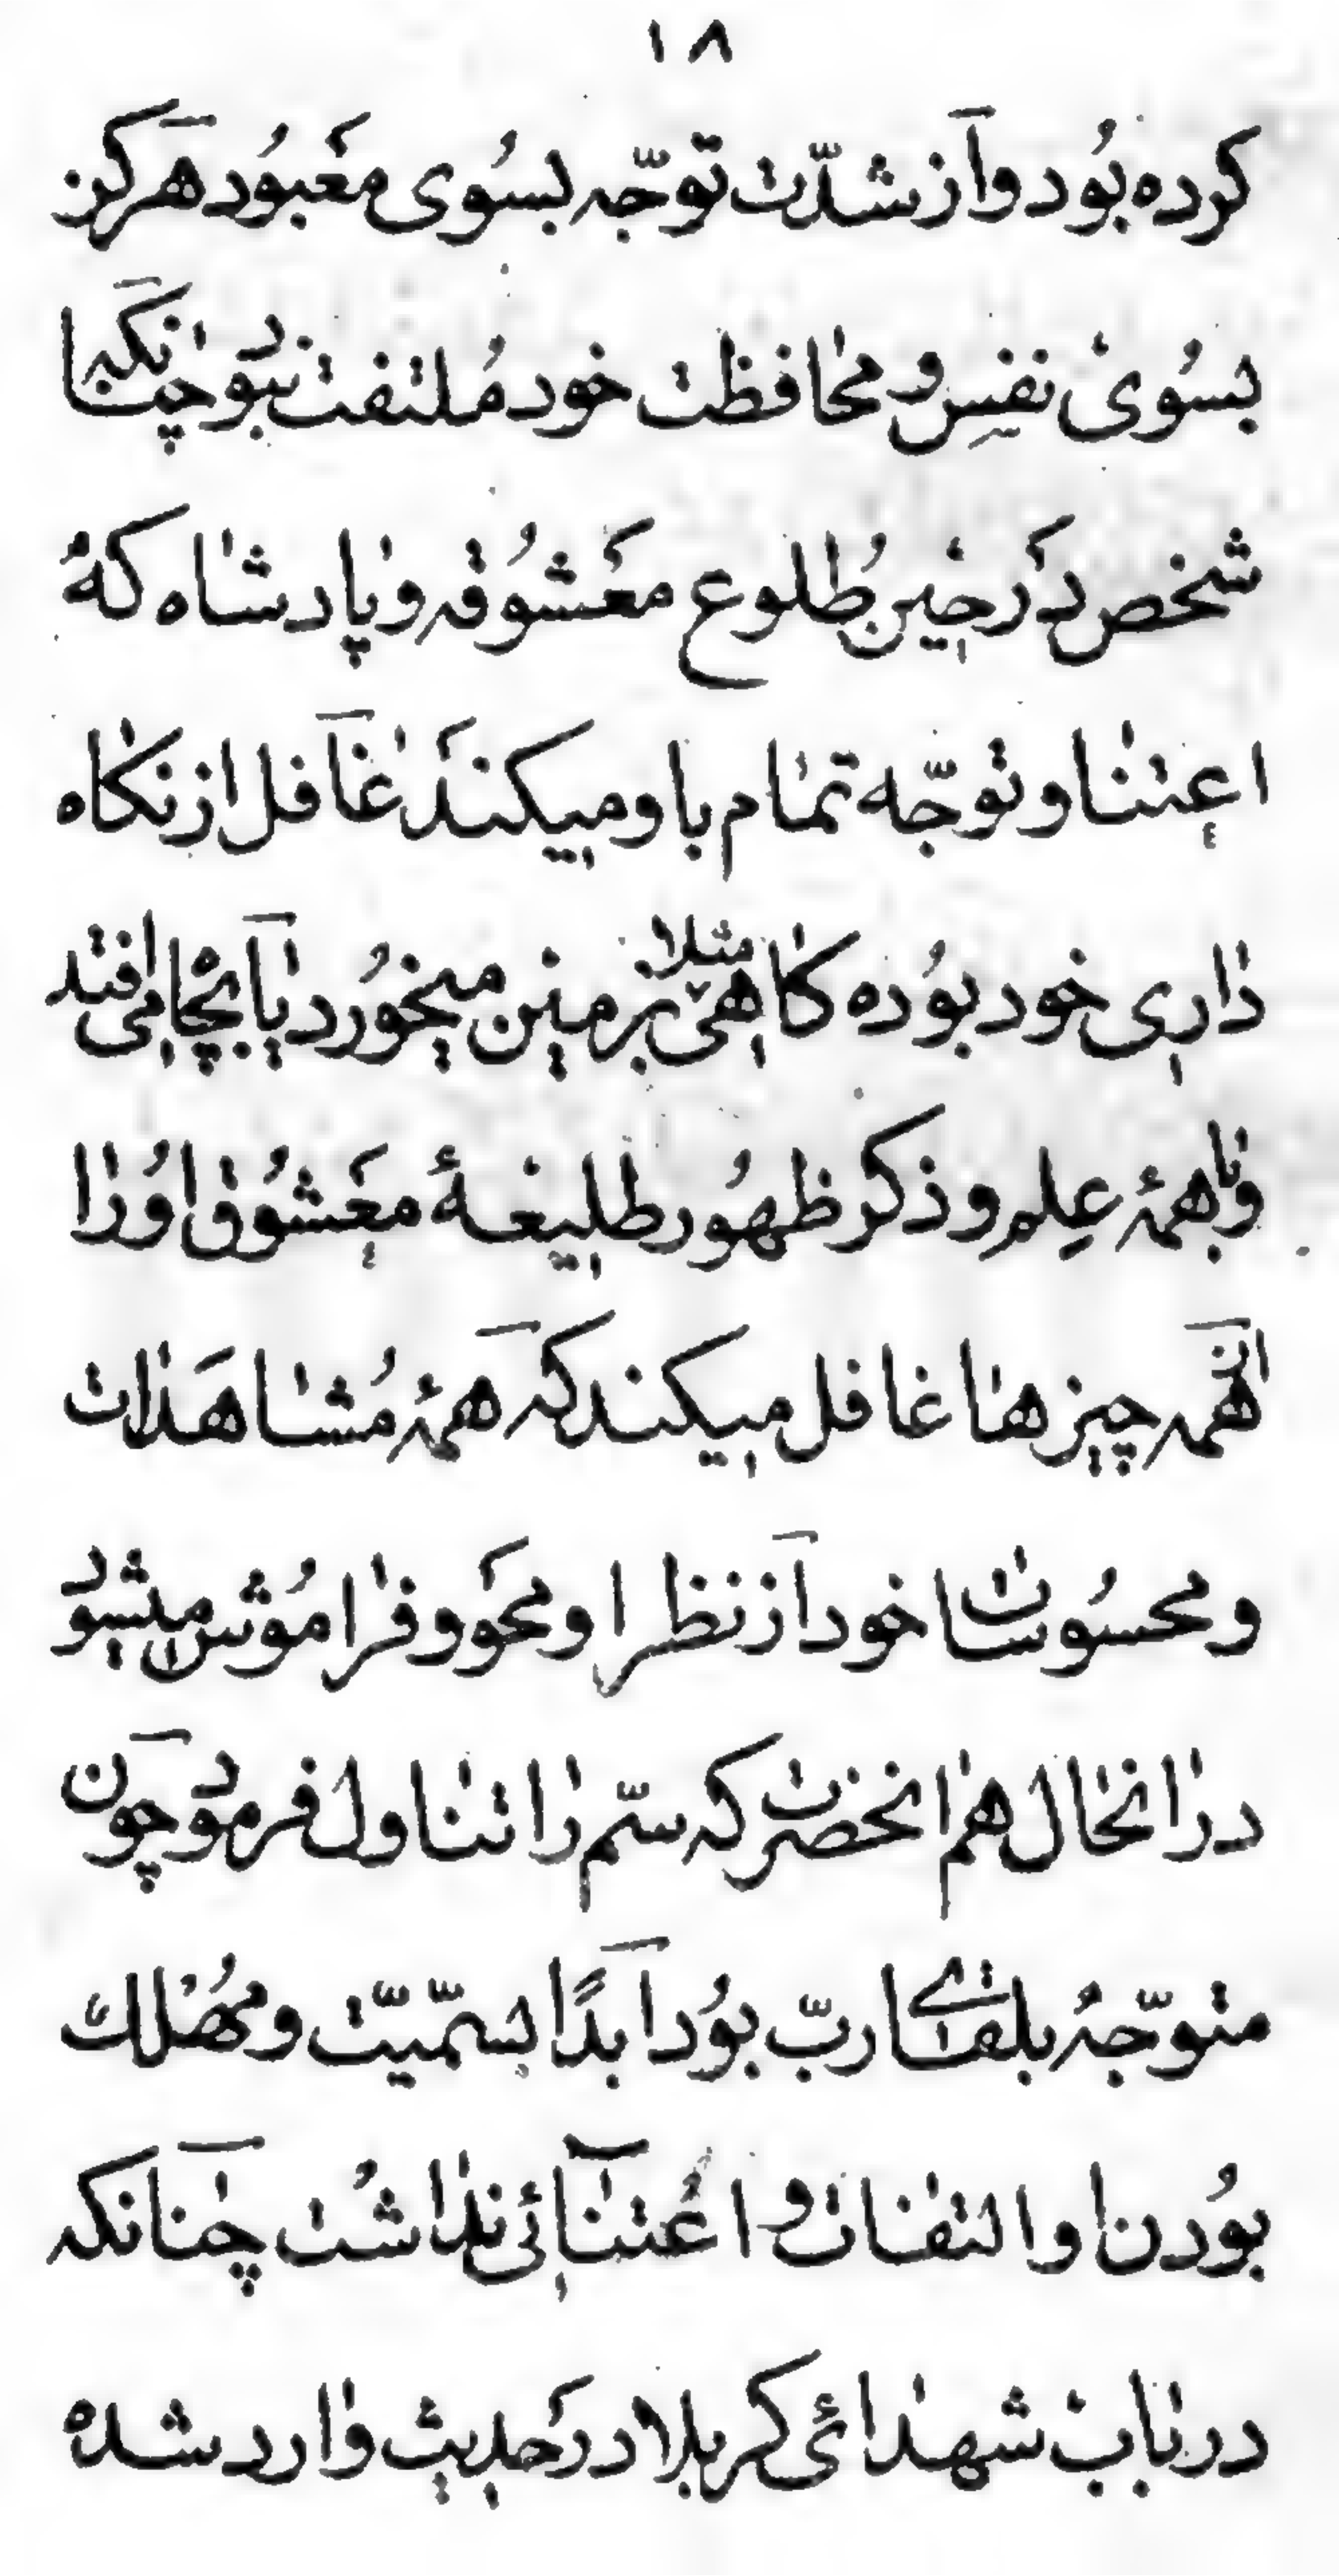 ۱۸
کرده بُود و اَز شدّت توجّه بسُوی مَعبُود هَرکز
بسُوی نفسِ و محافظت خود مُلتفت نبود چنانکه با
شخص دَر حین طُلوع مَعشُوقه و پادشاه که
اعتنا و توجّه تمام باو میکندَ غافَل از نکاه
داری خود بوُده کاهی مثلا بزمین میخوُرد یا بچا می افتد
و با همهٔ عِلم و ذکر ظهوُر طلیعهٔ معَشُوق اوُ را
از آنهمه چیزها غافل میکند که همهٔ مُشاهَدات
و محسُوسات خود اَز نظر او محَو و فراموُش میشود
در انحال هم انحضرت که سمّ را تناول فرمود چون
متوّجهُ بلقای ربّ بوُد اَبدًا بسمّیّت و مهُلك
بوُدن او التفات و اعُتنائی نداشت چنانکه
در باب شهدائی کربلا در حَدیث وارد شده